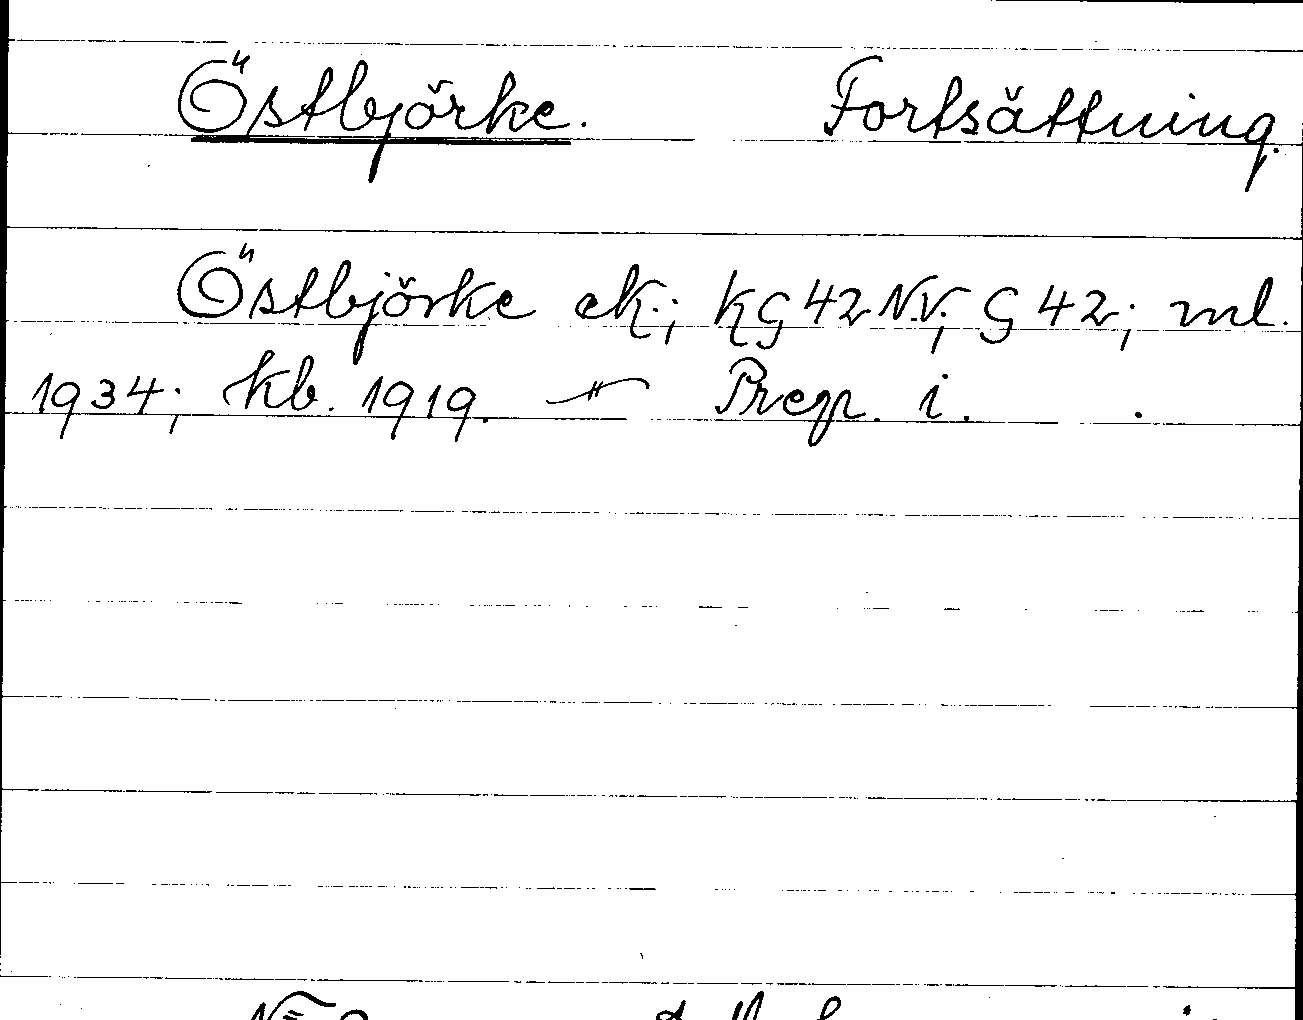 Östbjörke. Fortsättning.
Östbjörke ek; KG 42 N.V; G 42; ml.
1934; kb. 1919. — Prep. i. .